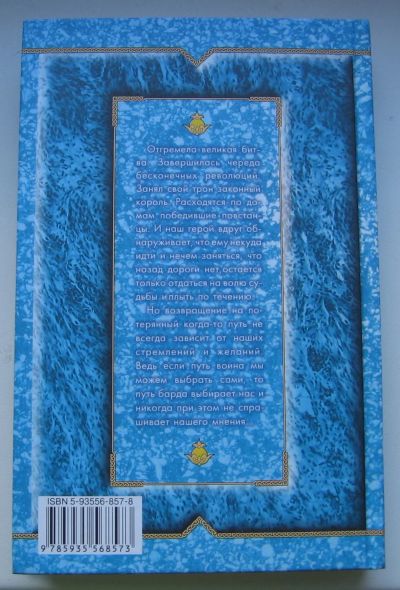 Отгремела великая бит-
ва. Завершилась череда
бесконечных революций.
Занял свой трон законный
король. Расходятся по до-
мам победившие повстан-
цы. И наш герой вдруг об-
наруживает, что ему некуда
идти и нечем заняться, что
назад дороги нет, остается
только отдаться на волю су-
дьбы и плыть по течению.
Но возвращение на по-
терянный когда-то путь не
всегда зависит от наших
стремлений и желаний.
Ведь если путь воина мы
можем выбрать сами, то
путь барда выбирает нас и
никогда при этом не спра-
шивает нашего мнения.
ISBN 5-93556-857-8
9 785935 568573